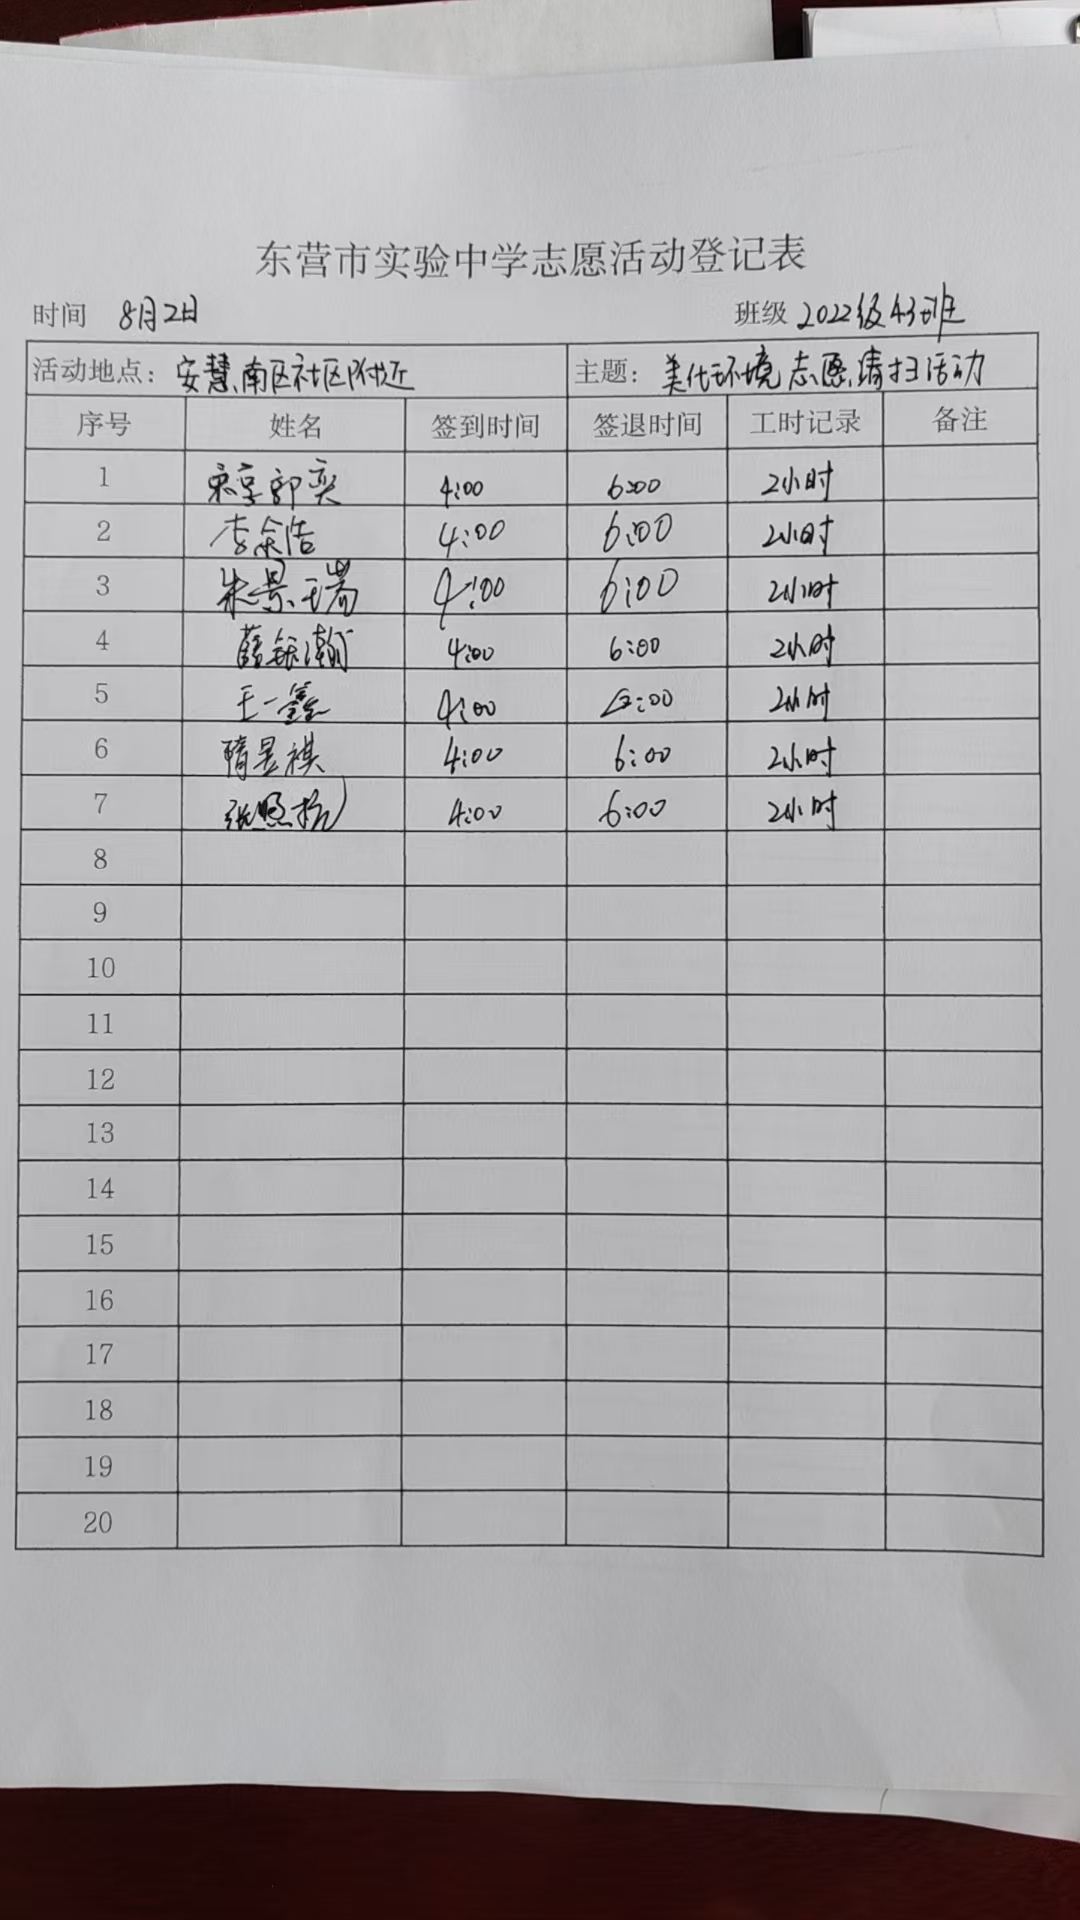 东营市实验中学志愿活动登记表
时间 8月2日 班级 2022级43班
活动地点：安慧南区社区附近 主题：美化环境志愿清扫活动
序号 姓名 签到时间 签退时间 工时记录 备注
1 4:00 6:00 2小时
2 李余浩 4:00 6:00 2小时
3 朱景瑞 4:00 6:00 2小时
4 薛钰瀚 4:00 6:00 2小时
5 王一鑫 4:00 2小时
6 隋昱祺 4:00 6:00 2小时
7 4:00 6:00 2小时
8
9
10
11
12
13
14
15
16
17
18
19
20